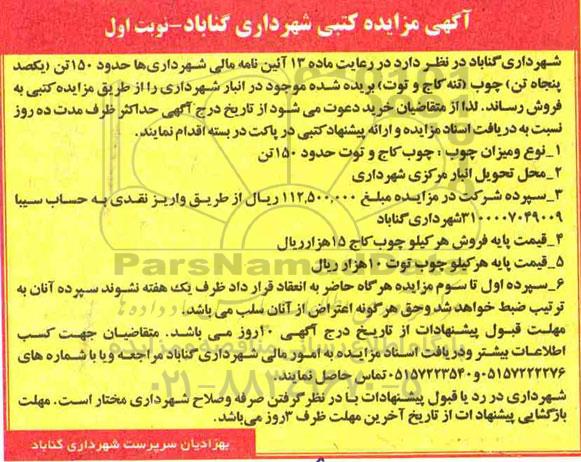 آگهی مزایده کتبی شهرداری گناباد-نوبت اول
شهرداری گناباد در نظر دارد در رعایت ماده ۱۳ آئین نامه مالی شهرداری‌ها حدود ۱۵۰ تن (یکصد
پنجاه تن) چوب (تنه کاج و توت) بریده شده موجود در انبار شهرداری را از طریق مزایده کتبی به
فروش رساند. لذا از متقاضیان خرید دعوت می شود از تاریخ درج آگهی حداکثر ظرف مدت ده روز
نسبت به دریافت اسناد مزایده و ارائه پیشنهاد کتبی در پاکت در بسته اقدام نمایند.
۱_نوع ومیزان چوب : چوب کاج و توت حدود ۱۵۰ تن
۲_محل تحویل انبار مرکزی شهرداری
۳_سپرده شرکت در مزایده مبلغ ۱۱۲,۵۰۰,۰۰۰ ریال از طریق واریز نقدی به حساب سیبا
۳۱۰۰۰۰۷۰۴۹۰۰۹شهرداری گناباد
۴_قیمت پایه فروش هر کیلو چوب کاج ۱۵هزارریال
۵_قیمت پایه هر کیلو چوب توت ۱۰هزار ریال
۶_سپرده اول تا سوم مزایده هرگاه حاضر به انعقاد قرار داد ظرف یک هفته نشوند سپرده آنان به
ترتیب ضبط خواهد شد وحق هر گونه اعتراض از آنان سلب می باشد.
مهلت قبول پیشنهادات از تاریخ درج آگهی ۱۰روز می باشد. متقاضیان جهت کسب
اطلاعات بیشتر ودریافت اسناد مزایده به امور مالی شهرداری گناباد مراجعه ویا با شماره های
۰۵۱۵۷۲۲۲۲۷۶و۰۵۱۵۷۲۲۳۵۴۰ تماس حاصل نمایند.
شهرداری در رد یا قبول پیشنهادات با در نظر گرفتن صرفه وصلاح شهرداری مختار است. مهلت
بازگشایی پیشنهادات از تاریخ آخرین مهلت ظرف ۳روز می‌باشد.
بهزادیان سرپرست شهرداری گناباد
ParsNamadData
۰۲۱-۸۸۳۴۹۶۷۰-۵